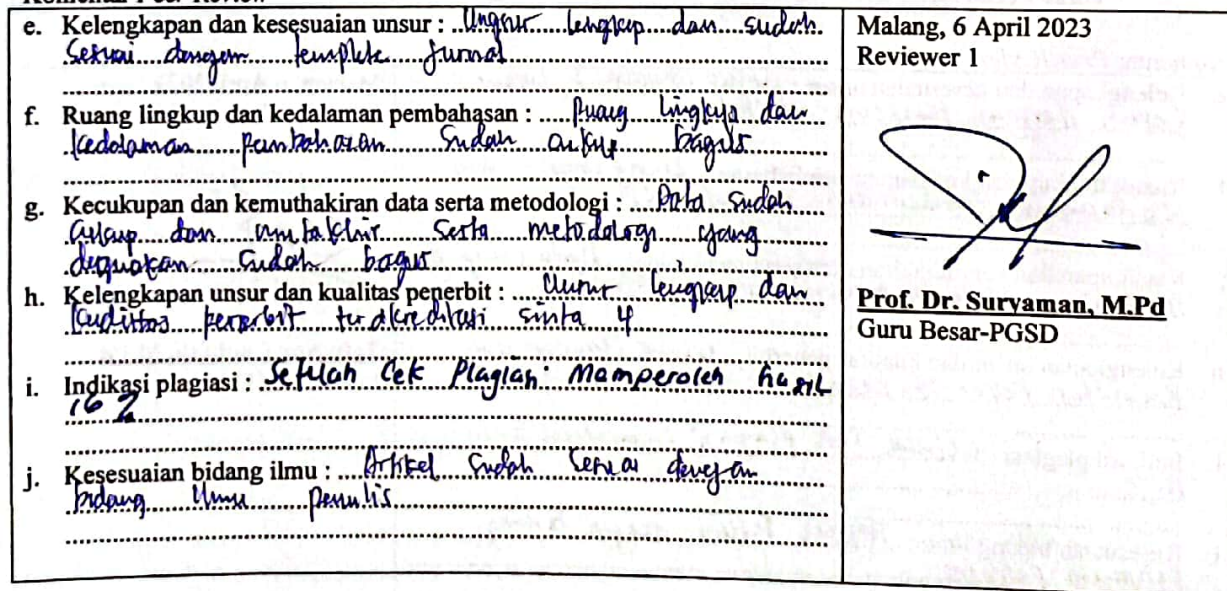 e. Kelengkapan dan kesesuaian unsur : Unsur lengkap dan sudah
sesuai dengan template jurnal
f. Ruang lingkup dan kedalaman pembahasan : Ruang lingkup dan
kedalaman pembahasan sudah cukup bagus
g. Kecukupan dan kemuthakiran data serta metodologi : Data sudah
cukup dan mutakhir serta metodologi yang
digunakan sudah bagus
h. Kelengkapan unsur dan kualitas penerbit : Unsur lengkap dan
kualitas penerbit terakreditasi sinta 4
i. Indikasi plagiasi : Setelah Cek Plagiasi memperoleh hasil
16 %
j. Kesesuaian bidang ilmu : Artikel sudah sesuai dengan
bidang ilmu penulis
Malang, 6 April 2023
Reviewer 1
Prof. Dr. Suryaman, M.Pd
Guru Besar-PGSD